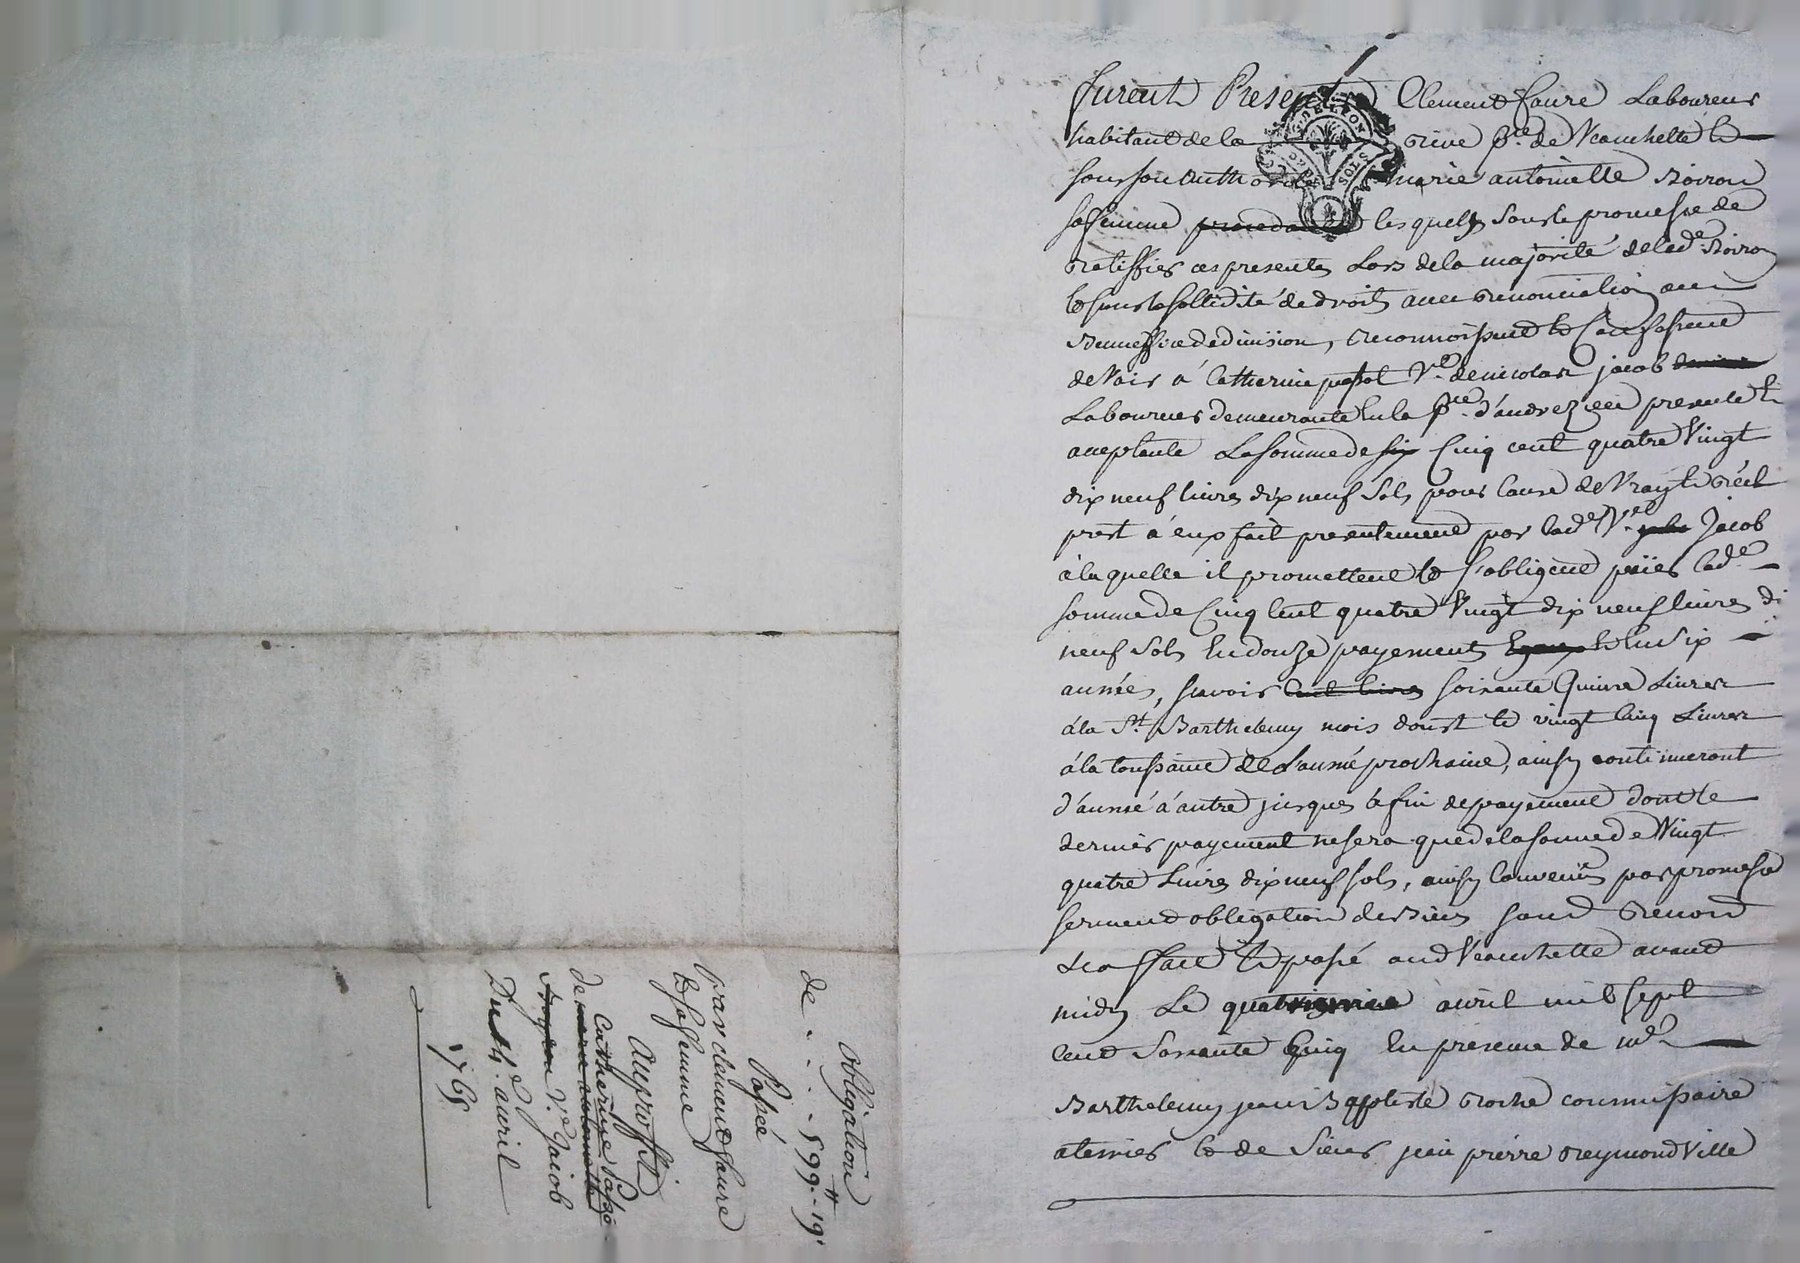 furent Present Clement faure Laboureur
habitant de la rive p.e de Veauchette et
sous son authorité marie antoinette Boiron
sa femme procedant lesquels sous la promesse de
ratiffier ces presentes Lors de la majorité de lad.e Boiron
et sous la sollidité de droit avec renonciation au
Beneffice de division, reconnoissent et Confessent
devoir à Catherine passot V.e de nicolas jacob
Laboureur demeurante En la p.sse d'andrezieu presente et
acceptante La somme de six Cinq cent quatre Vingt
dix neuf livres dix neuf sols pour Cause de Vray et réel
prest à eux fait presentement par lad.e V.e Jacob
à la quelle il promettent et s'obligent païer lad.e
somme de Cinq Cent quatre Vingt dix neuf livres di
neuf sols En douze payements Egaux et En six
années, sçavoir Cent livres soixante Quinze Livres
à la S.t Barthelemy mois d'oust et vingt Cinq Livres
à la toussaint de L'année prochaine, ainsy continueront
d'année à autre jusques à fin de payement dont le
dernier payement ne sera que de la somme de Vingt
quatre Livres dix neuf sols, ainsy Convenu par promesse
serment obligation de Biens soumd renond
Fait et passé aud Veauchette avant
midy Le quatrieme avril mil sept
cent Soixante Cinq En presence de m.e
Barthelemy jean Baptiste roche commissaire
a terrier et de Sieur jean pierre reymond Ville
obligation
de . . . . 599.tt 19.s
Passée
par clement faure
et sa femme
au proffit
de marie antoinette
Catherine Passot
V.e Jacob
Du 4.e avril
1765